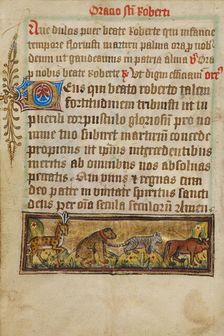 Oratio sci Roberti
Aue dulcis puer beate Roberte qui infancie
tempore floruisti martirii palma ora pro nobis
deum ut gaudeamus in patria alma Or
p nobis beate Roberte Ut digni efficiam
Deus qui beato roberto talem
fortitudinem tribuisti ut in
puerili corpusculo gloriosi pro no
mine tuo subiret martirium concede
propicius ut ipsius intercedentibus
meritis ab omnibus nos absoluas
peccatis Qui viuis & regnas cum
deo patre in vnitate spiritus sancti
deus per omia secula seculorum Amen